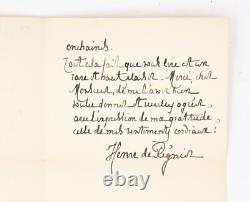 enchainés.
Tout cela fait que votre livre est un
rare et haut plaisir. Merci, cher
Monsieur, de me l'avoir bien
voulu donner et veuillez agréer,
avec l'expression de ma gratitude,
celle de mes sentiments cordiaux :
Henri de Régnier